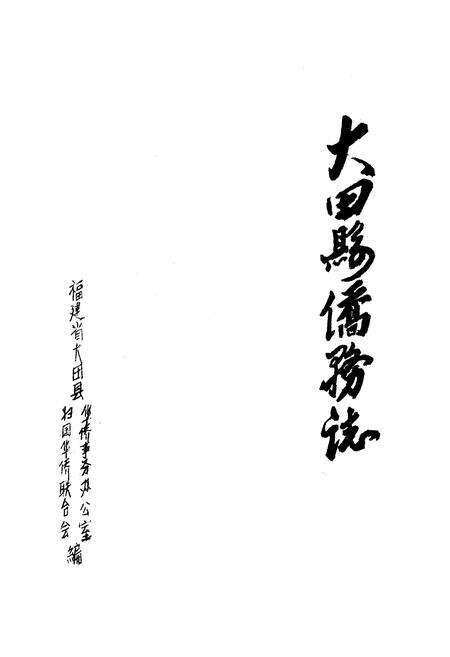 大田縣僑務誌
福建省大田县
华侨事务办公室
归国华侨联合会
编